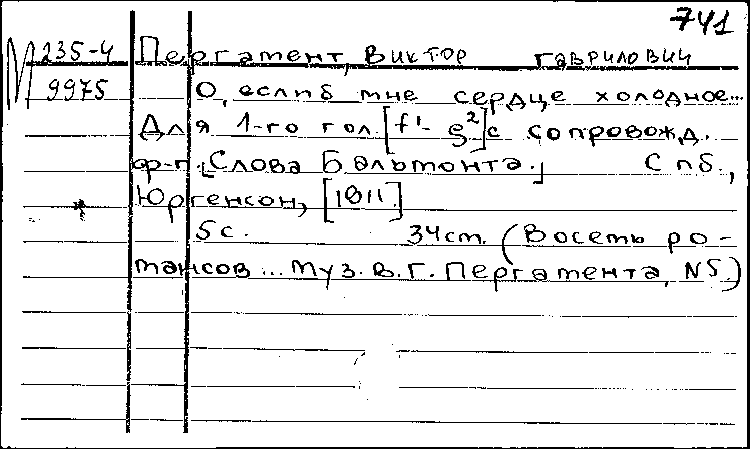 741
М 235-4 Пергамент, Виктор Гаврилович
9975 О, еслиб мне сердце холодное...
Для 1-го гол. [f¹- g²] с сопровожд.
ф-п. [Слова Бальмонта.] Спб.,
Юргенсон, [1911.]
5 с. 34 см. (Восемь ро-
мансов... муз. В. Г. Пергамента, N5.)